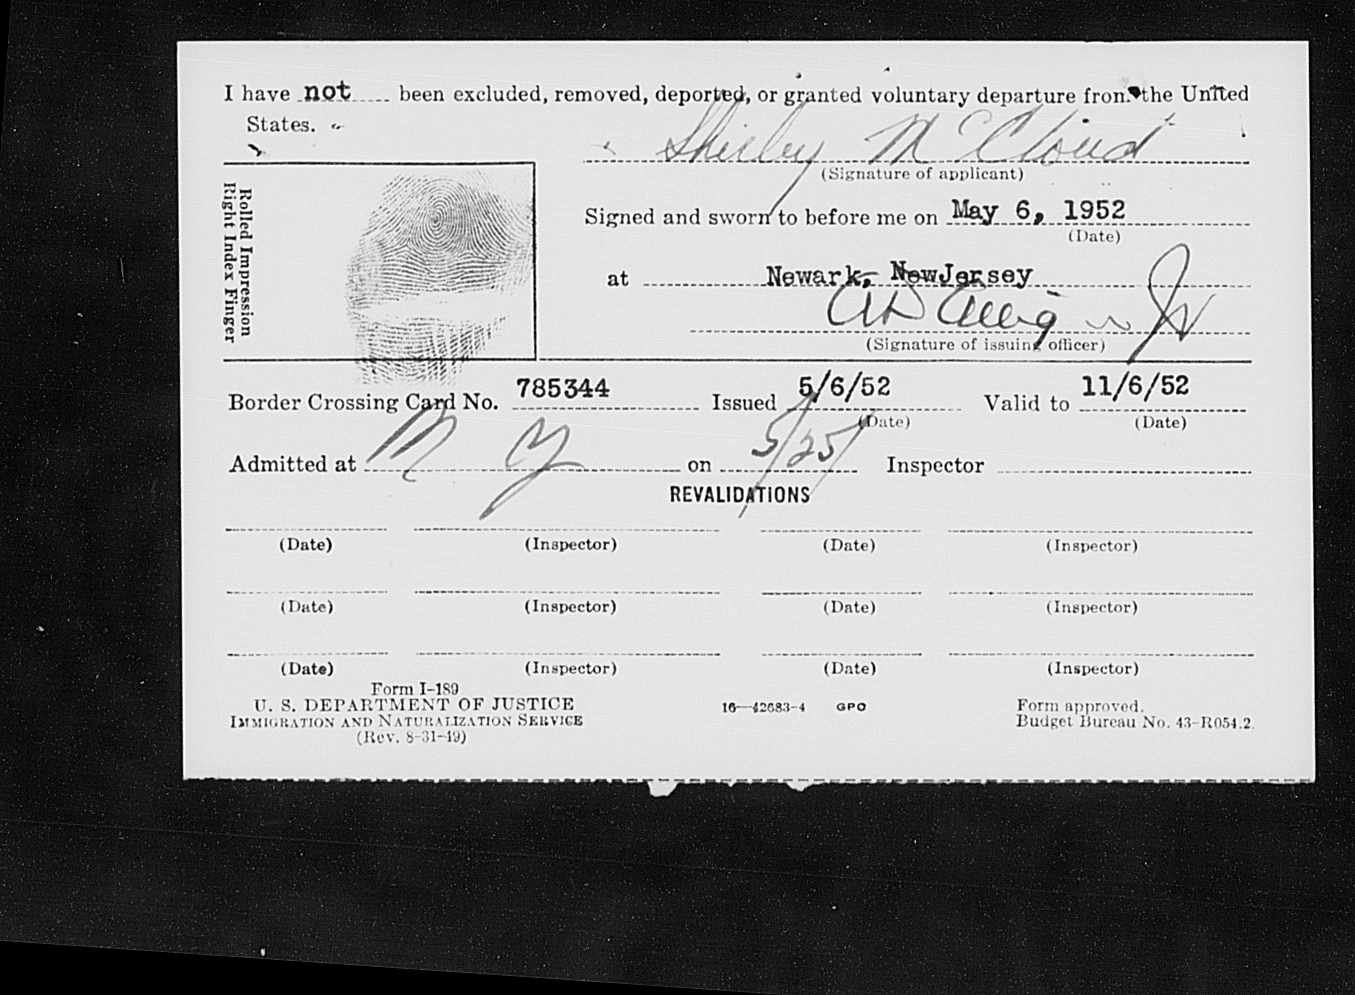 I have not been excluded, removed, deported, or granted voluntary departure from the United
States.
Shirley McCloud
(Signature of applicant)
Rolled Impression
Right Index Finger
Signed and sworn to before me on May 6, 1952
(Date)
at Newark, NewJersey
(Signature of issuing officer)
Border Crossing Card No. 785344 Issued 5/6/52 Valid to 11/6/52
(Date) (Date)
Admitted at N Y on 5/25/ Inspector
REVALIDATIONS
(Date) (Inspector) (Date) (Inspector)
(Date) (Inspector) (Date) (Inspector)
(Date) (Inspector) (Date) (Inspector)
Form I-189
U. S. DEPARTMENT OF JUSTICE
IMMIGRATION AND NATURALIZATION SERVICE
(Rev. 8-31-49)
16—42683-4 GPO
Form approved.
Budget Bureau No. 43-R054.2.